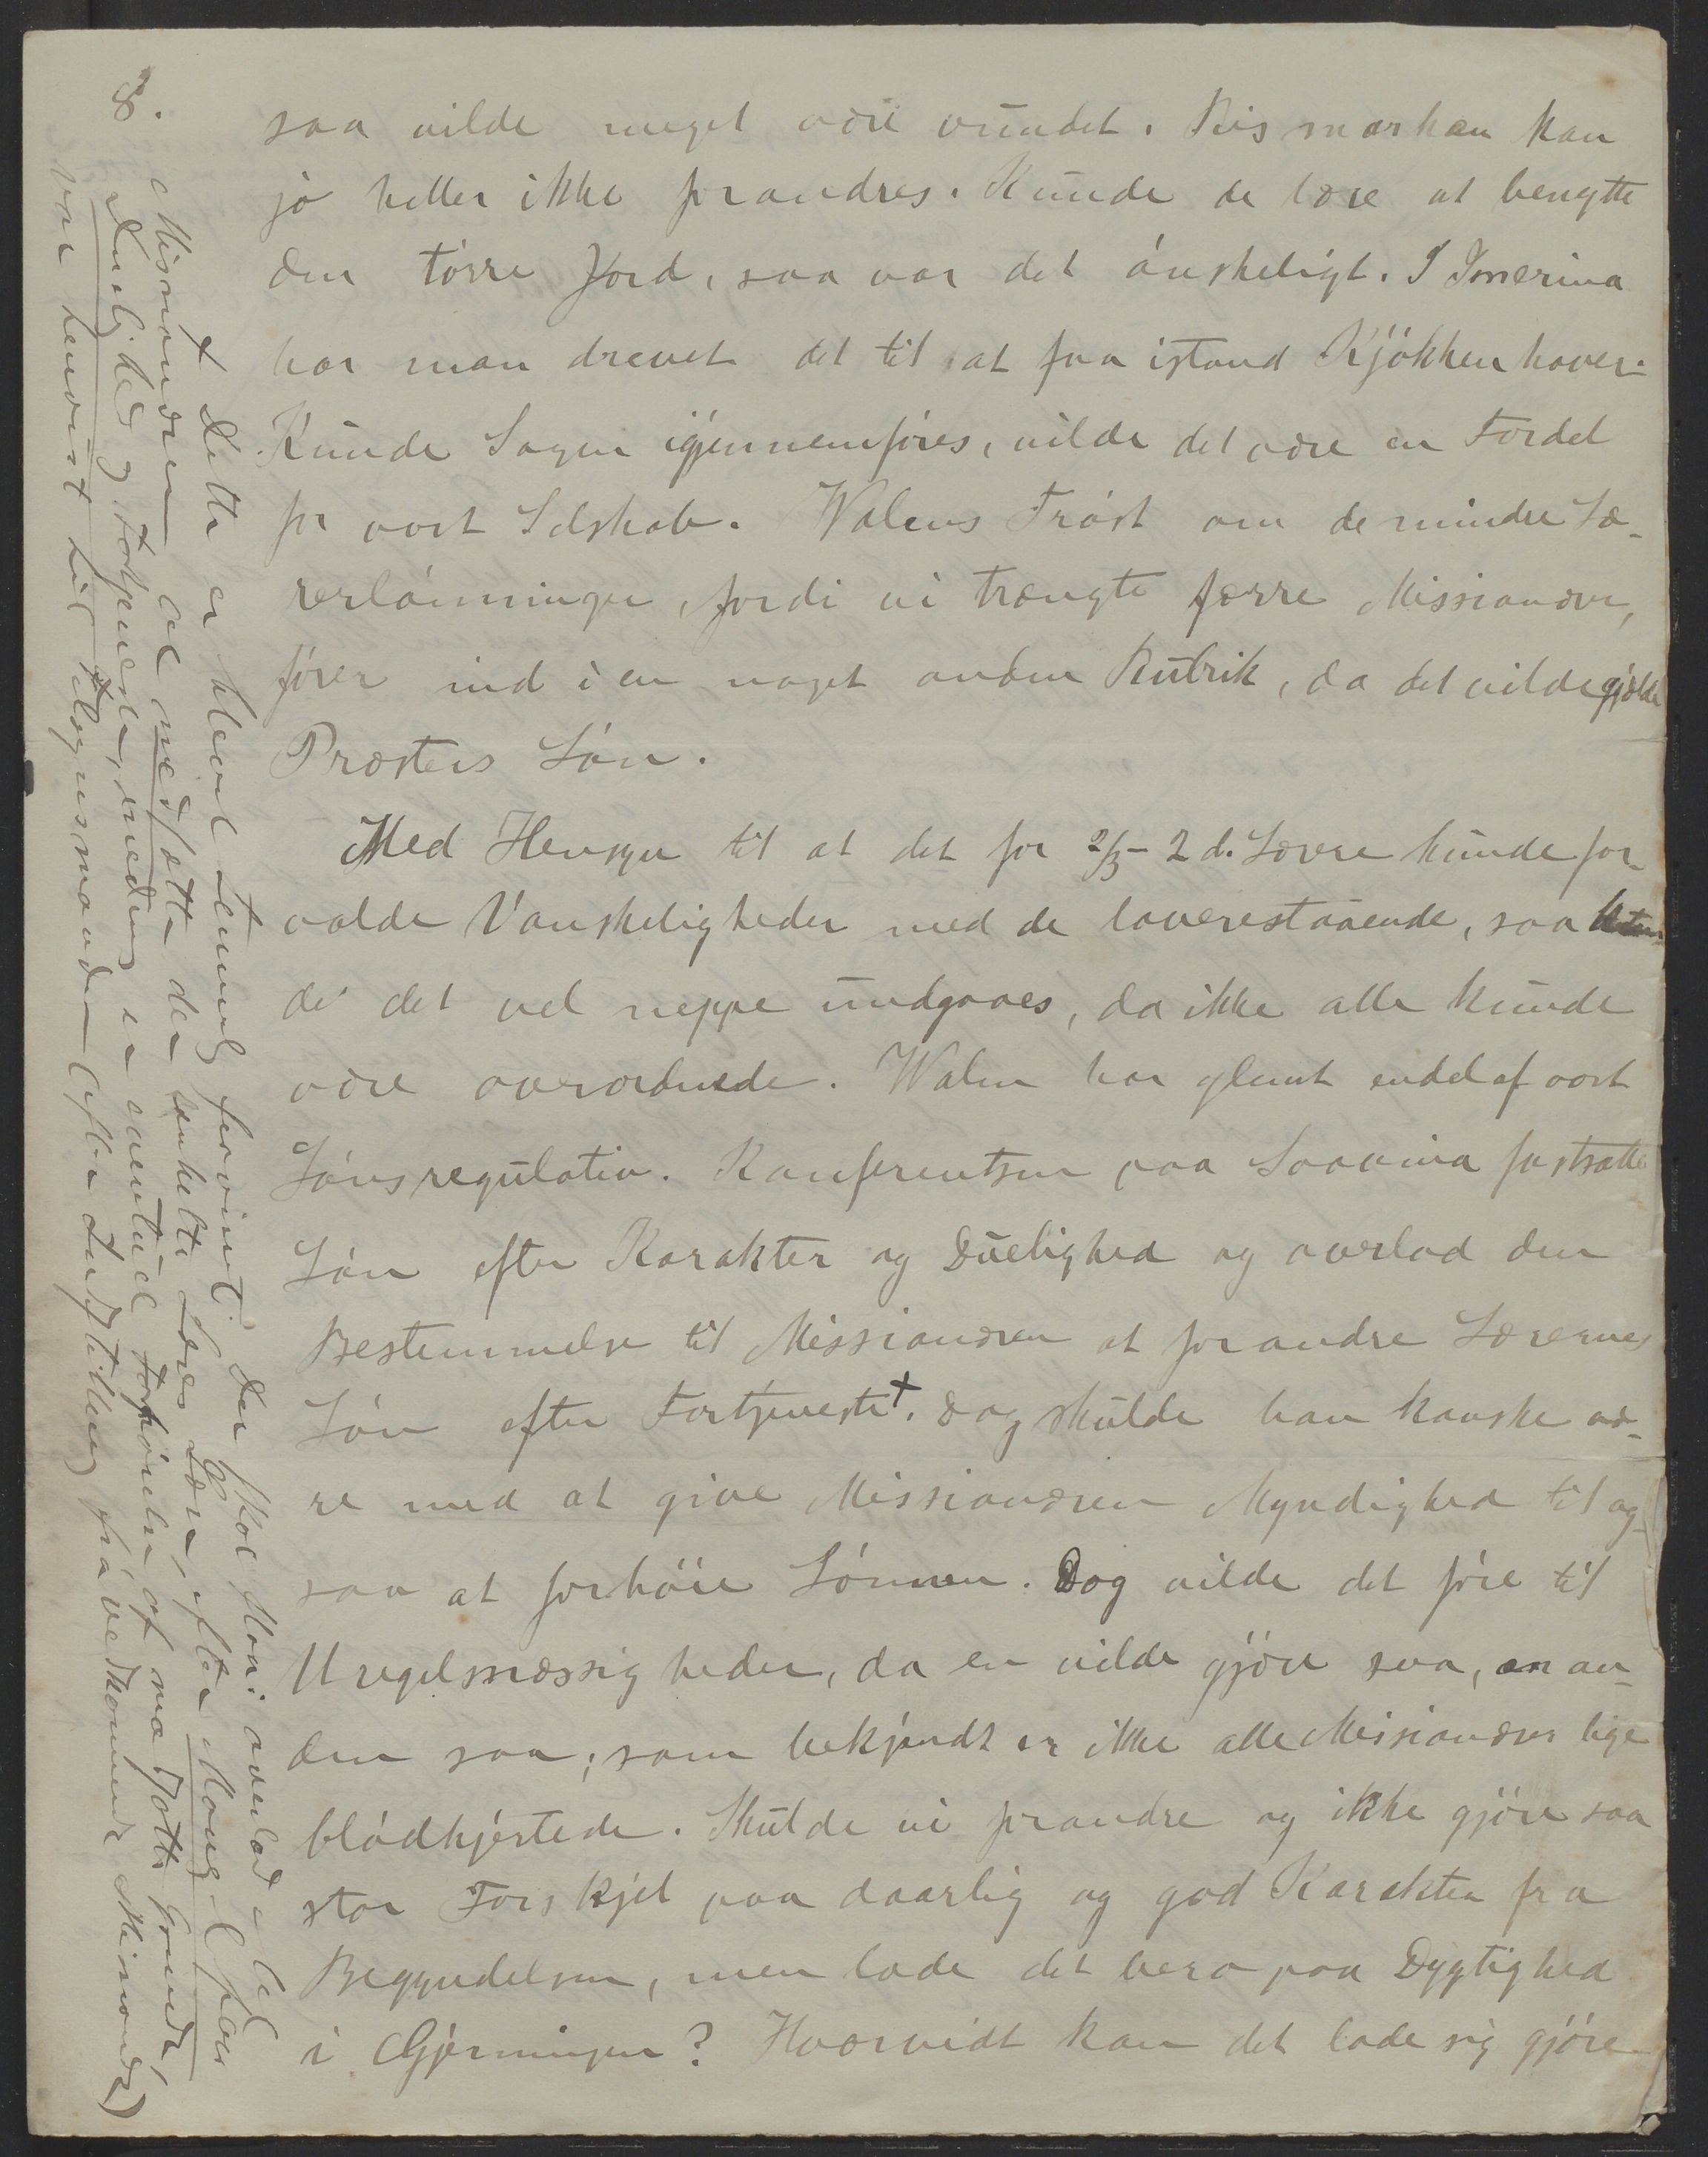 8.
saa vilde meget være vundet. Rismarken kan
jo heller ikke forandres. Kunde de lære at benytte
den tørre Jord, saa var det ønskeligt. I Imerina
har man drevet det til at faa istand Kjøkkenhaver.
Kunde Sagen igjennemføres, vilde det være en Fordel
for vort Selskab. Walens Trøst om de mindre Læ-
rerlønninger, fordi vi trængte færre Missionærer,
fører ind i en noget anden Rubrik, da det vilde gjælde
Præstens Løn.
Med Hensyn til at det for 2/3 - 2 d. Lærere kunde for-
volde Vanskeligheder med de laverestaaende, saa kun-
de det vel neppe undgaaes, da ikke alle kunde
være overordnede. Walen har glemt endel af vort
Lønsregulativ. Konferentsen paa Soavina fastsatte
Løn efter Karakter og Duelighed og overlod den
Bestemmelse til Missionæren at forandre Lærernes
Løn efter Fortjeneste+. Dog skulde han kanske væ-
re med at give Missionæren Myndighed til og-
saa at forhøie Lønnen. Dog vilde det føre til
Uregelmæssigheder, da en vilde gjøre saa, en an-
den saa; som bekjendt er ikke alle Missionærer lige
blødhjertede. Skulde vi forandre og ikke gjøre saa
stor Forskjel paa daarlig og god Karakter fra
Begyndelsen, men lade det bero paa Dygtighed
i Gjerningen? Hvorvidt kan det lade sig gjøre
+ Dette er blevet temmelig Der skal staa: overlod til
Missionæren at nedsætte den enkelte Lærers Løn efter Mangel paa
Duelighed og Fortjeneste, medens en eventuel Forhøielse af maatte Grunde,
var henvist til Tilsynsmanden (efter Indstilling fra vedkommende Missionær)